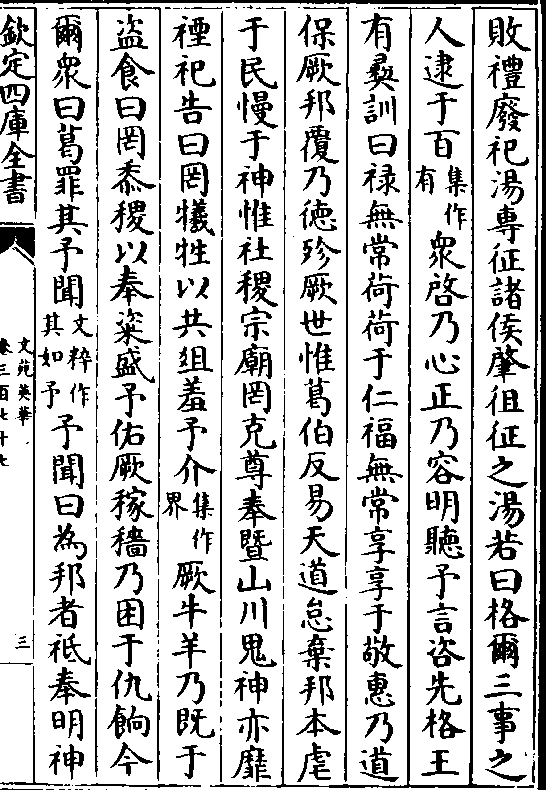 敗禮廢祀湯專征諸侯肇徂征之湯若曰格爾三事之
人逮于百集作有衆啓乃心正乃容明聽予言咨先格王
有彞訓曰禄無常荷荷于仁福無常享享于敬惠乃道
保厥邦覆乃德殄厥世惟葛伯反易天道怠棄邦本虐
于民慢于神惟社稷宗廟罔克尊奉暨山川鬼神亦靡
禋祀告曰罔犧牲以共俎羞予介集作界厥牛羊乃既于
盗食曰罔黍稷以奉粢盛予佑厥稼穡乃困于仇餉今
爾衆曰葛罪其予聞文粹作其如予予聞曰為邦者祗奉明神
欽定四庫全書
文苑英華
卷三百七十七
三